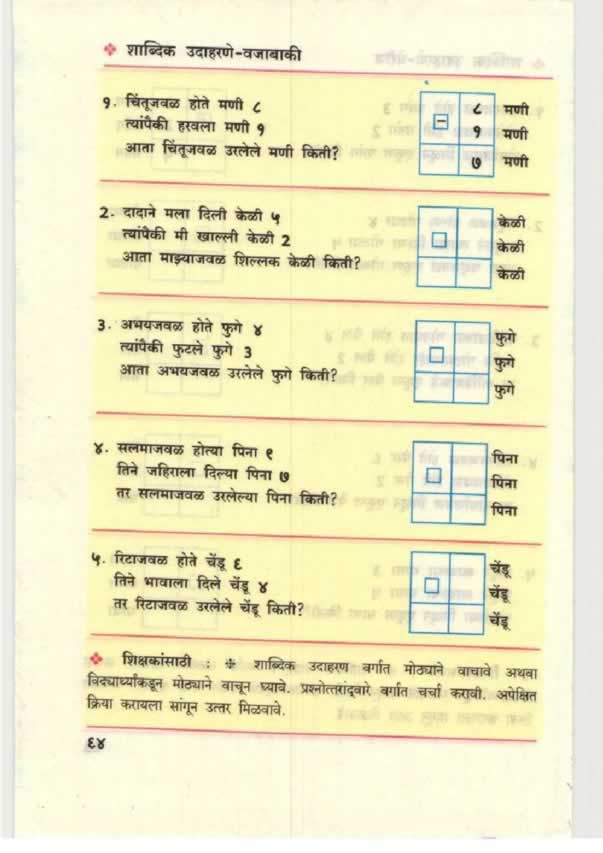 ❖ शाब्दिक उदाहरणे-वजाबाकी
१. चिंतूजवळ होते मणी ८
त्यांपैकी हरवला मणी १
आता चिंतूजवळ उरलेले मणी किती?
८ मणी
− १ मणी
७ मणी
२. दादाने मला दिली केळी ५
त्यांपैकी मी खाल्ली केळी २
आता माझ्याजवळ शिल्लक केळी किती?
केळी
केळी
केळी
३. अभयजवळ होते फुगे ४
त्यांपैकी फुटले फुगे ३
आता अभयजवळ उरलेले फुगे किती?
फुगे
फुगे
फुगे
४. सलमाजवळ होत्या पिना ९
तिने जहिराला दिल्या पिना ७
तर सलमाजवळ उरलेल्या पिना किती?
पिना
पिना
पिना
५. रिटाजवळ होते चेंडू ६
तिने भावाला दिले चेंडू ४
तर रिटाजवळ उरलेले चेंडू किती?
चेंडू
चेंडू
चेंडू
❖ शिक्षकांसाठी : ❉ शाब्दिक उदाहरण वर्गात मोठ्याने वाचावे अथवा
विद्यार्थ्यांकडून मोठ्याने वाचून घ्यावे. प्रश्नोत्तरांद्वारे वर्गात चर्चा करावी. अपेक्षित
क्रिया करायला सांगून उत्तर मिळवावे.
६४